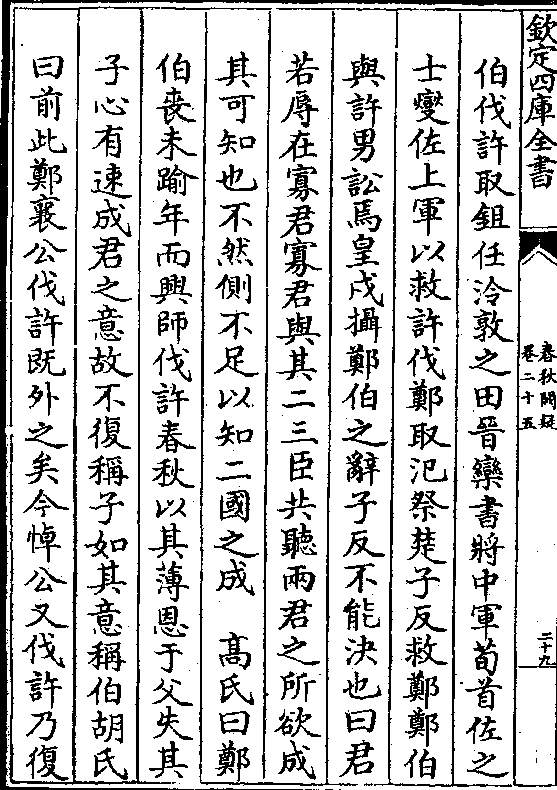 欽定四庫全書
春秋闕疑
卷二十五
二十九
伯伐許取鉏任泠敦之田晉欒書將中軍荀首佐之
士燮佐上軍以救許伐鄭取氾祭楚子反救鄭鄭伯
與許男訟焉皇戌攝鄭伯之辭子反不能決也曰君
若辱在寡君寡君與其二三臣共聽兩君之所欲成
其可知也不然側不足以知二國之成　高氏曰鄭
伯喪未踰年而興師伐許春秋以其薄恩于父失其
子心有速成君之意故不復稱子如其意稱伯胡氏
曰前此鄭襄公伐許既外之矣今悼公又伐許乃復